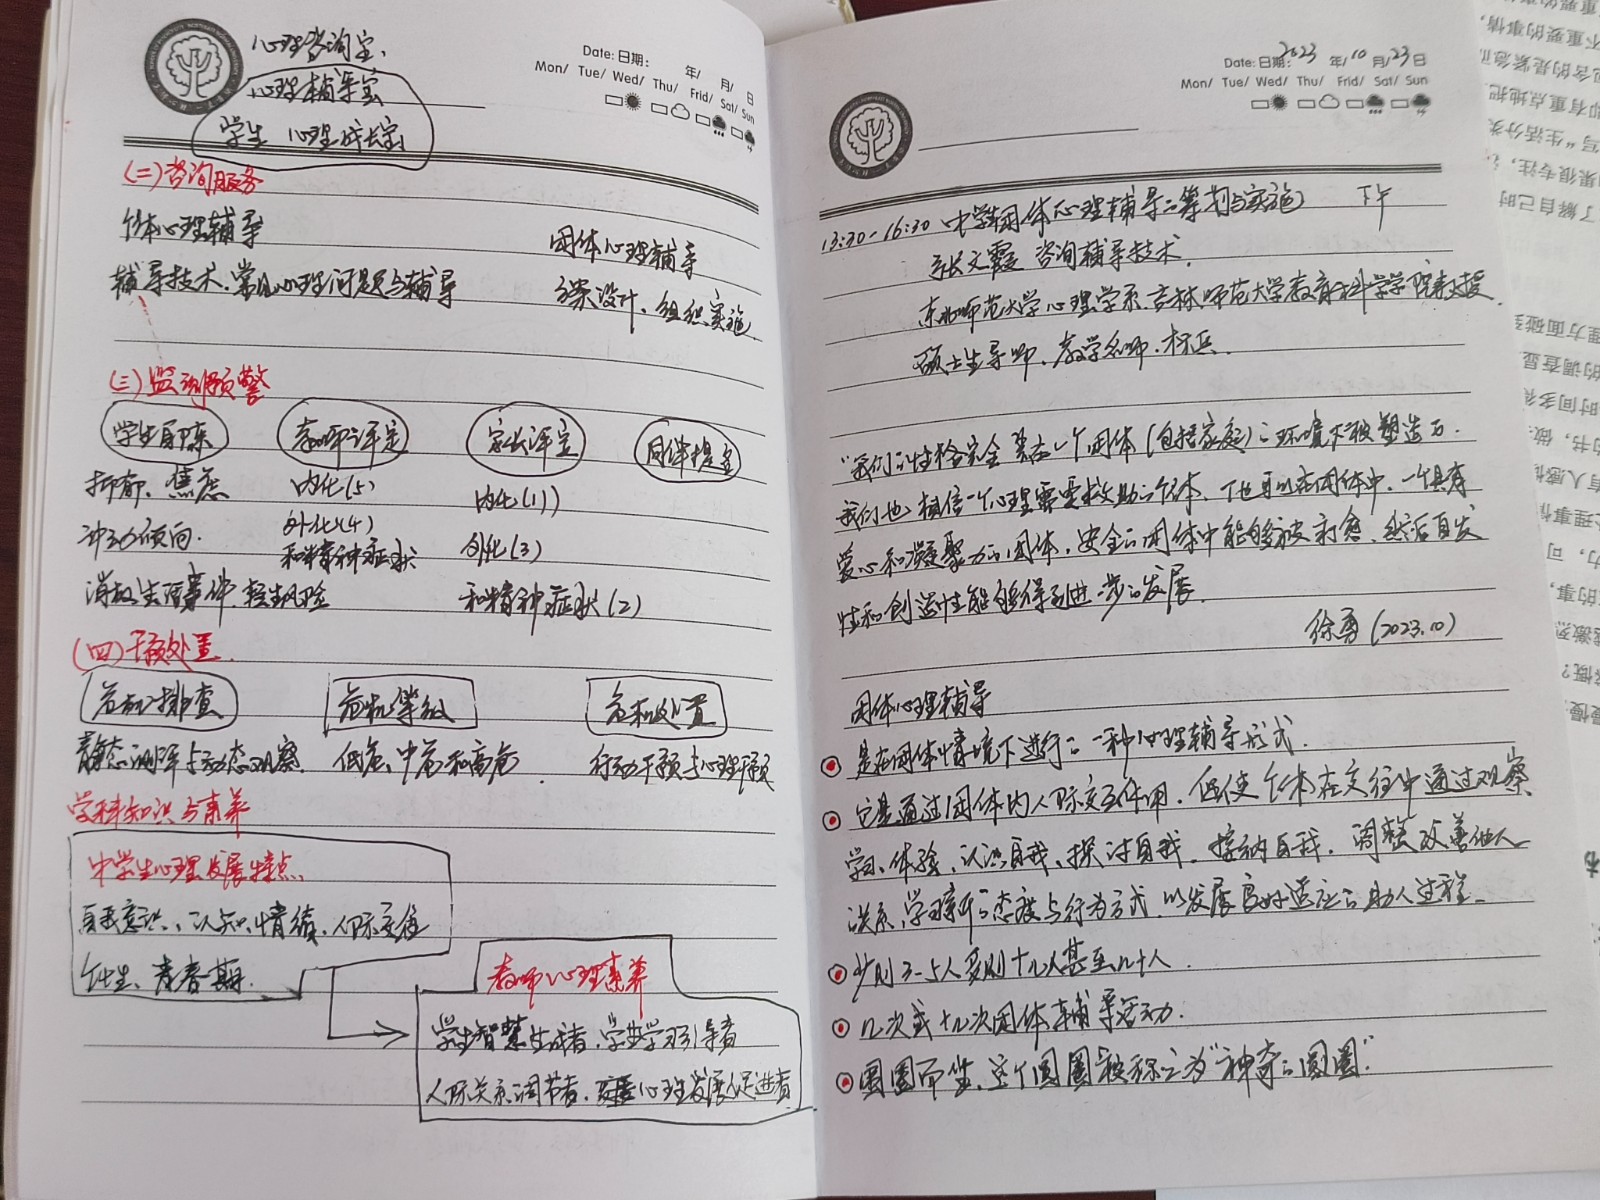 心理咨询室、
心理辅导室
学生 心理成长室
Date: 日期: 年/ 月/ 日
Mon/ Tue/ Wed/ Thu/ Frid/ Sat/ Sun
(二)咨询服务
个体心理辅导 团体心理辅导
辅导技术、常见心理问题与辅导 方案设计、组织实施
(三)监测预警
学生自陈 教师评定 家长评定 同伴提名
抑郁、焦虑 内化(5) 内化(1)
冲动倾向. 外化(4) 外化(3)
和精神症状
消极生活事件、轻生风险 和精神症状(2)
(四)干预处置
危机排查 危机等级 危机处置
静态测评与动态观察 低危、中危和高危 行动干预与心理干预
学科知识与素养
中学生心理发展特点、
自我意识、认知、情绪、人际交往
个性、青春期.
教师心理素养
学生智慧生成者、学业学习引导者
人际关系调节者、心理发展促进者
Date: 日期: 2023 年/ 10 月/ 23 日
Mon/ Tue/ Wed/ Thu/ Frid/ Sat/ Sun
13:30-16:30 中学团体心理辅导之筹划与实施 下午
张文霞 咨询辅导技术.
东北师范大学心理学系、吉林师范大学教育科学学院教授.
硕士生导师、教学名师、标兵.
"我们的性格完全是在一个团体(包括家庭)的环境下被塑造的.
我们也相信一个心理需要救助的个体、也可以在团体中、一个具有
爱心和凝聚力的团体、安全的团体中能够被治愈、然后自发
性和创造性能够得到进一步的发展.
徐勇(2023.10)
团体心理辅导
是在团体情境下进行的一种心理辅导形式.
它是通过团体内人际交互作用、促使个体在交往中通过观察
学习、体验、认识自我、探讨自我、接纳自我、调整改善他人
关系、学习新的态度与行为方式、以发展良好适应的助人过程.
少则3-5人多则十几人甚至几十人.
几次或十几次团体辅导活动.
围圈而坐、这个圆圈被称之为"神奇的圆圈."